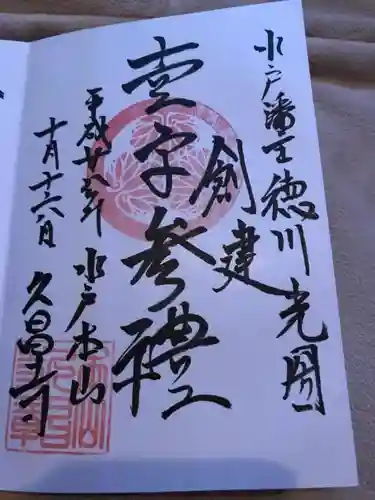 水戸藩主徳川光圀
創建
壹字参禮
平成廿六年
十月十六日
水戸本山
久昌寺